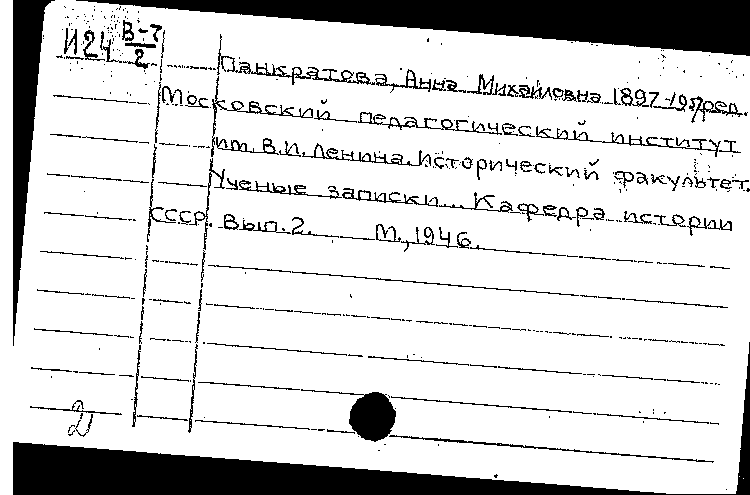 И24 В-7/2
Панкратова, Анна Михайловна 1897-1957ред.
Московский педагогический институт
им. В.И. Ленина. Исторический факультет.
Ученые записки... Кафедра истории
СССР. Вып. 2. М., 1946.
2